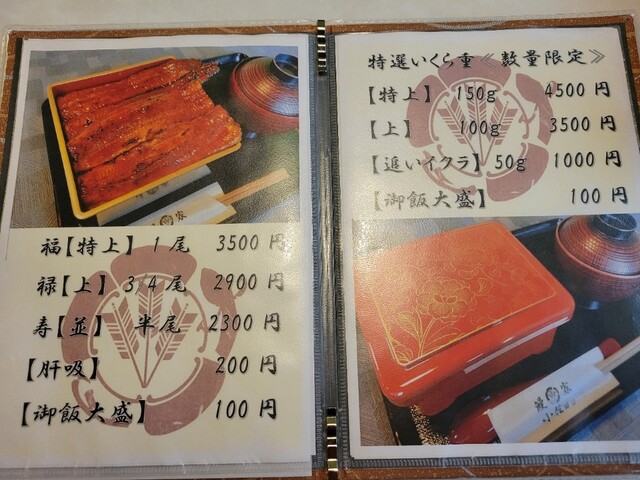 福【特上】 1尾 3500円
禄【上】 3/4尾 2900円
寿【並】 半尾 2300円
【肝吸】 200円
【御飯大盛】 100円
特選いくら重≪数量限定≫
【特上】 150g 4500円
【上】 100g 3500円
【追いイクラ】50g 1000円
【御飯大盛】 100円